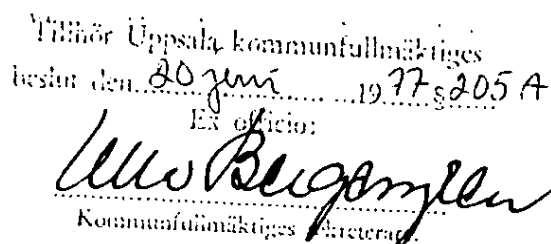 Tillhör Uppsala kommunfullmäktiges
beslut den 20 juni 1977 § 205 A
Ex officio:
Kommunfullmäktiges sekreterare